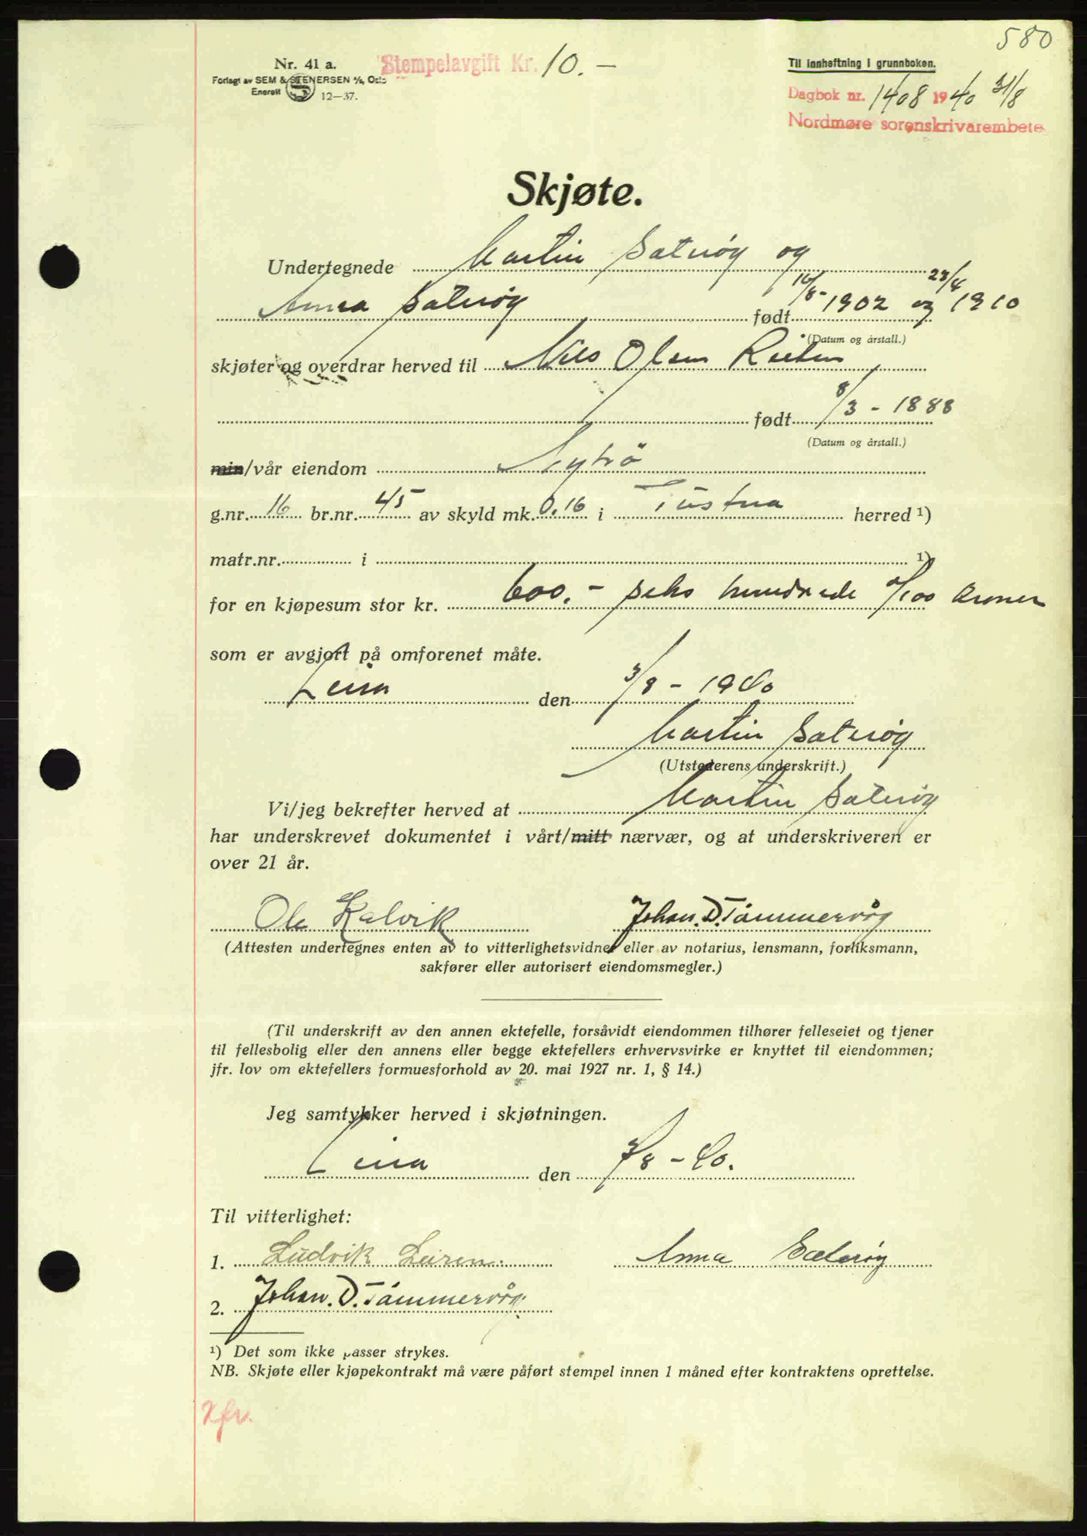 580
Nr. 41 a.
Forlagt av SEM & STENERSEN A/S, Oslo
Enerett 12—37.
Stempelavgift Kr. 10.-
Til innheftning i grunnboken.
Dagbok nr. 1408 1940 31/8
Nordmøre sorenskrivarembete
Skjøte.
Undertegnede Martin Sætrøy og
Anna Sætrøy født 16/8-1902 og 23/4 1910
(Datum og årstall.)
skjøter og overdrar herved til Nils Olsen
født 8/3 - 1888
(Datum og årstall.)
min/vår eiendom Nytrö
g.nr. 16 br.nr. 45 av skyld mk. 0,16 i Tustna herred ¹)
matr.nr. i ¹)
for en kjøpesum stor kr. 600.- seks hundrede 0/100 kroner
som er avgjort på omforenet måte.
Leira den 3/8 - 1940
Martin Sætrøy
(Utstederens underskrift.)
Vi/jeg bekrefter herved at Martin Sætrøy
har underskrevet dokumentet i vårt/mitt nærvær, og at underskriveren er
over 21 år.
Ole Kalvik Johan. D. Tømmervåg
(Attesten undertegnes enten av to vitterlighetsvidner eller av notarius, lensmann, forliksmann,
sakfører eller autorisert eiendomsmegler.)
(Til underskrift av den annen ektefelle, forsåvidt eiendommen tilhører felleseiet og tjener
til fellesbolig eller den annens eller begge ektefellers erhvervsvirke er knyttet til eiendommen;
jfr. lov om ektefellers formuesforhold av 20. mai 1927 nr. 1, § 14.)
Jeg samtykker herved i skjøtningen.
Leira den 3/8 - 40.
Til vitterlighet:
1. Ludvik Leiren. Anna Sætrøy
2. Johan. D. Tømmervåg.
¹) Det som ikke passer strykes.
NB. Skjøte eller kjøpekontrakt må være påført stempel innen 1 måned efter kontraktens oprettelse.